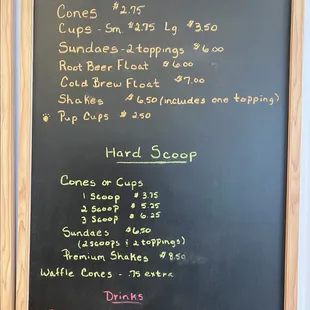 Cones $2.75
Cups - Sm. $2.75 Lg. $3.50
Sundaes - 2 toppings $6.00
Root Beer Float $6.00
Cold Brew Float $7.00
Shakes $6.50 (includes one topping)
Pup Cups $2.50
Hard Scoop
Cones or Cups
1 Scoop $3.75
2 Scoop $5.25
3 Scoop $6.25
Sundaes $6.50
(2 scoops & 2 toppings)
Premium Shakes $8.50
Waffle Cones - .75 extra
Drinks